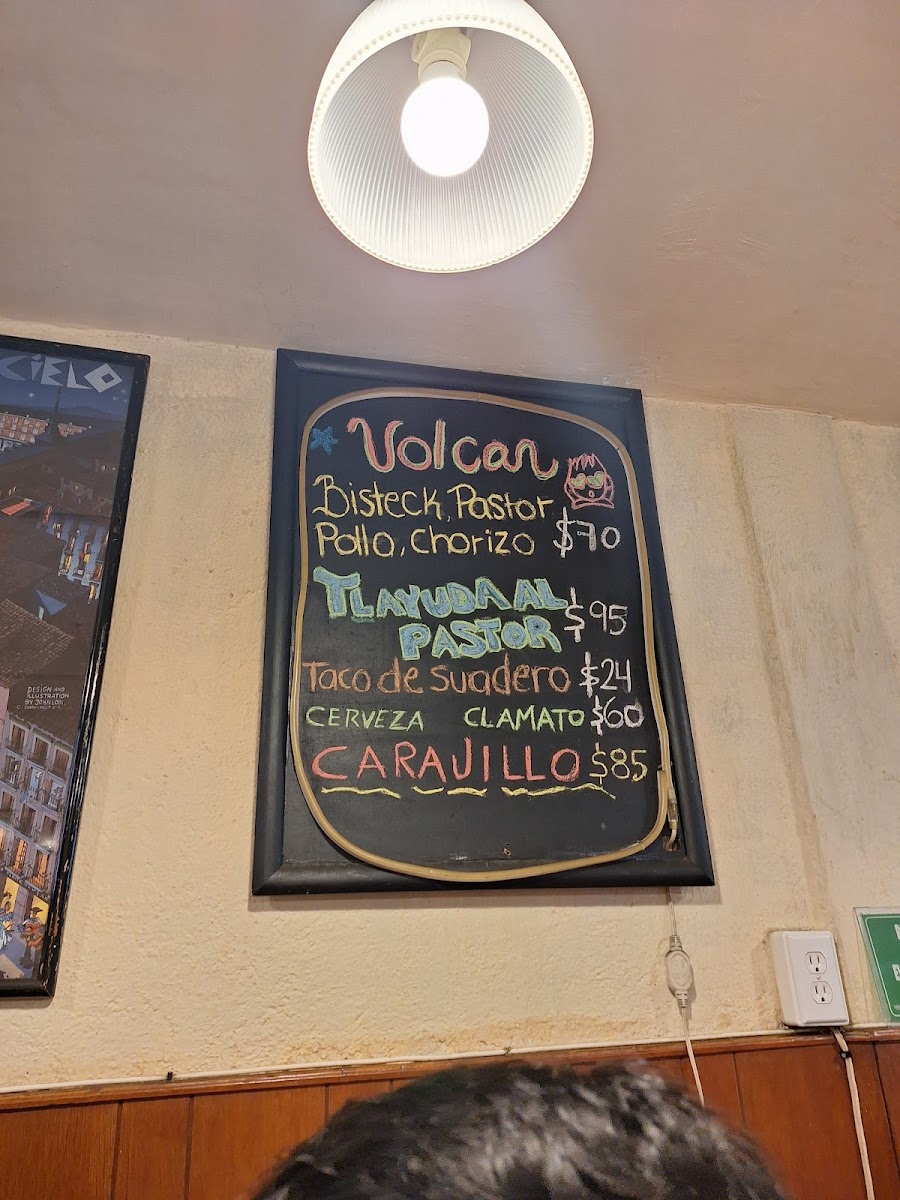 CIELO
DESIGN AND
ILLUSTRATION
Volcan
Bisteck, Pastor
Pollo, Chorizo $70
TLAYUDA AL
PASTOR $95
Taco de suadero $24
CERVEZA CLAMATO $60
CARAJILLO $85